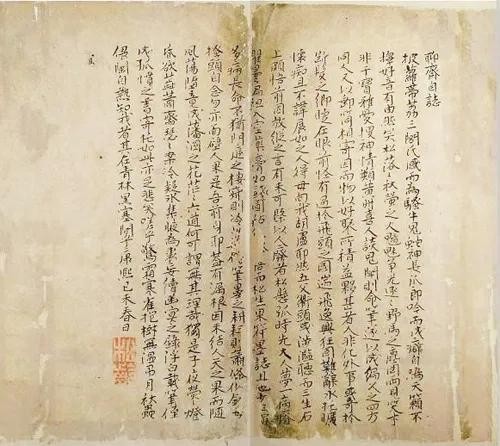 聊齋自誌
披蘿帶荔三閭氏感而為騷牛鬼蛇神長爪郎吟而成癖自鳴天籟不
擇好音有由然矣松落落秋螢之火魑魅爭光逐逐野馬之塵罔兩見笑才
非干寶雅愛搜神情類黃州喜人談鬼聞則命筆遂以成編久之四方
同人又以郵筒相寄因而物以好聚所積益夥甚者人非化外事或奇於
斷髮之鄉睫在眼前怪有過於飛頭之國遄飛逸興狂固難辭永託曠
懷癡且不諱展如之人得毋向我胡盧耶然五父衢頭或涉濫聽而三生石
上頗悟前因放縱之言有未可概以人廢者松懸弧時先大人夢一病瘠
瞿曇偏袒入室藥膏如錢圓粘寤而松生果符墨誌且也少羸
多病長命不猶門庭之棲寂則冷淡筆墨之耕耘則蕭條似鉢每
搔頭自念勿亦面壁人果是吾前身耶蓋有漏根因未結人天之果而隨
風蕩墮竟成藩溷之花茫茫六道何可謂無其理哉獨是子夜熒熒燈
昏欲蕊蕭齋瑟瑟案冷疑冰集腋為裘妄續幽冥之錄浮白載筆僅
成孤憤之書寄托如此亦足悲矣嗟乎驚霜寒雀抱樹無溫弔月秋蟲
偎闌自熱知我者其在青林黑塞間乎康熙己未春日